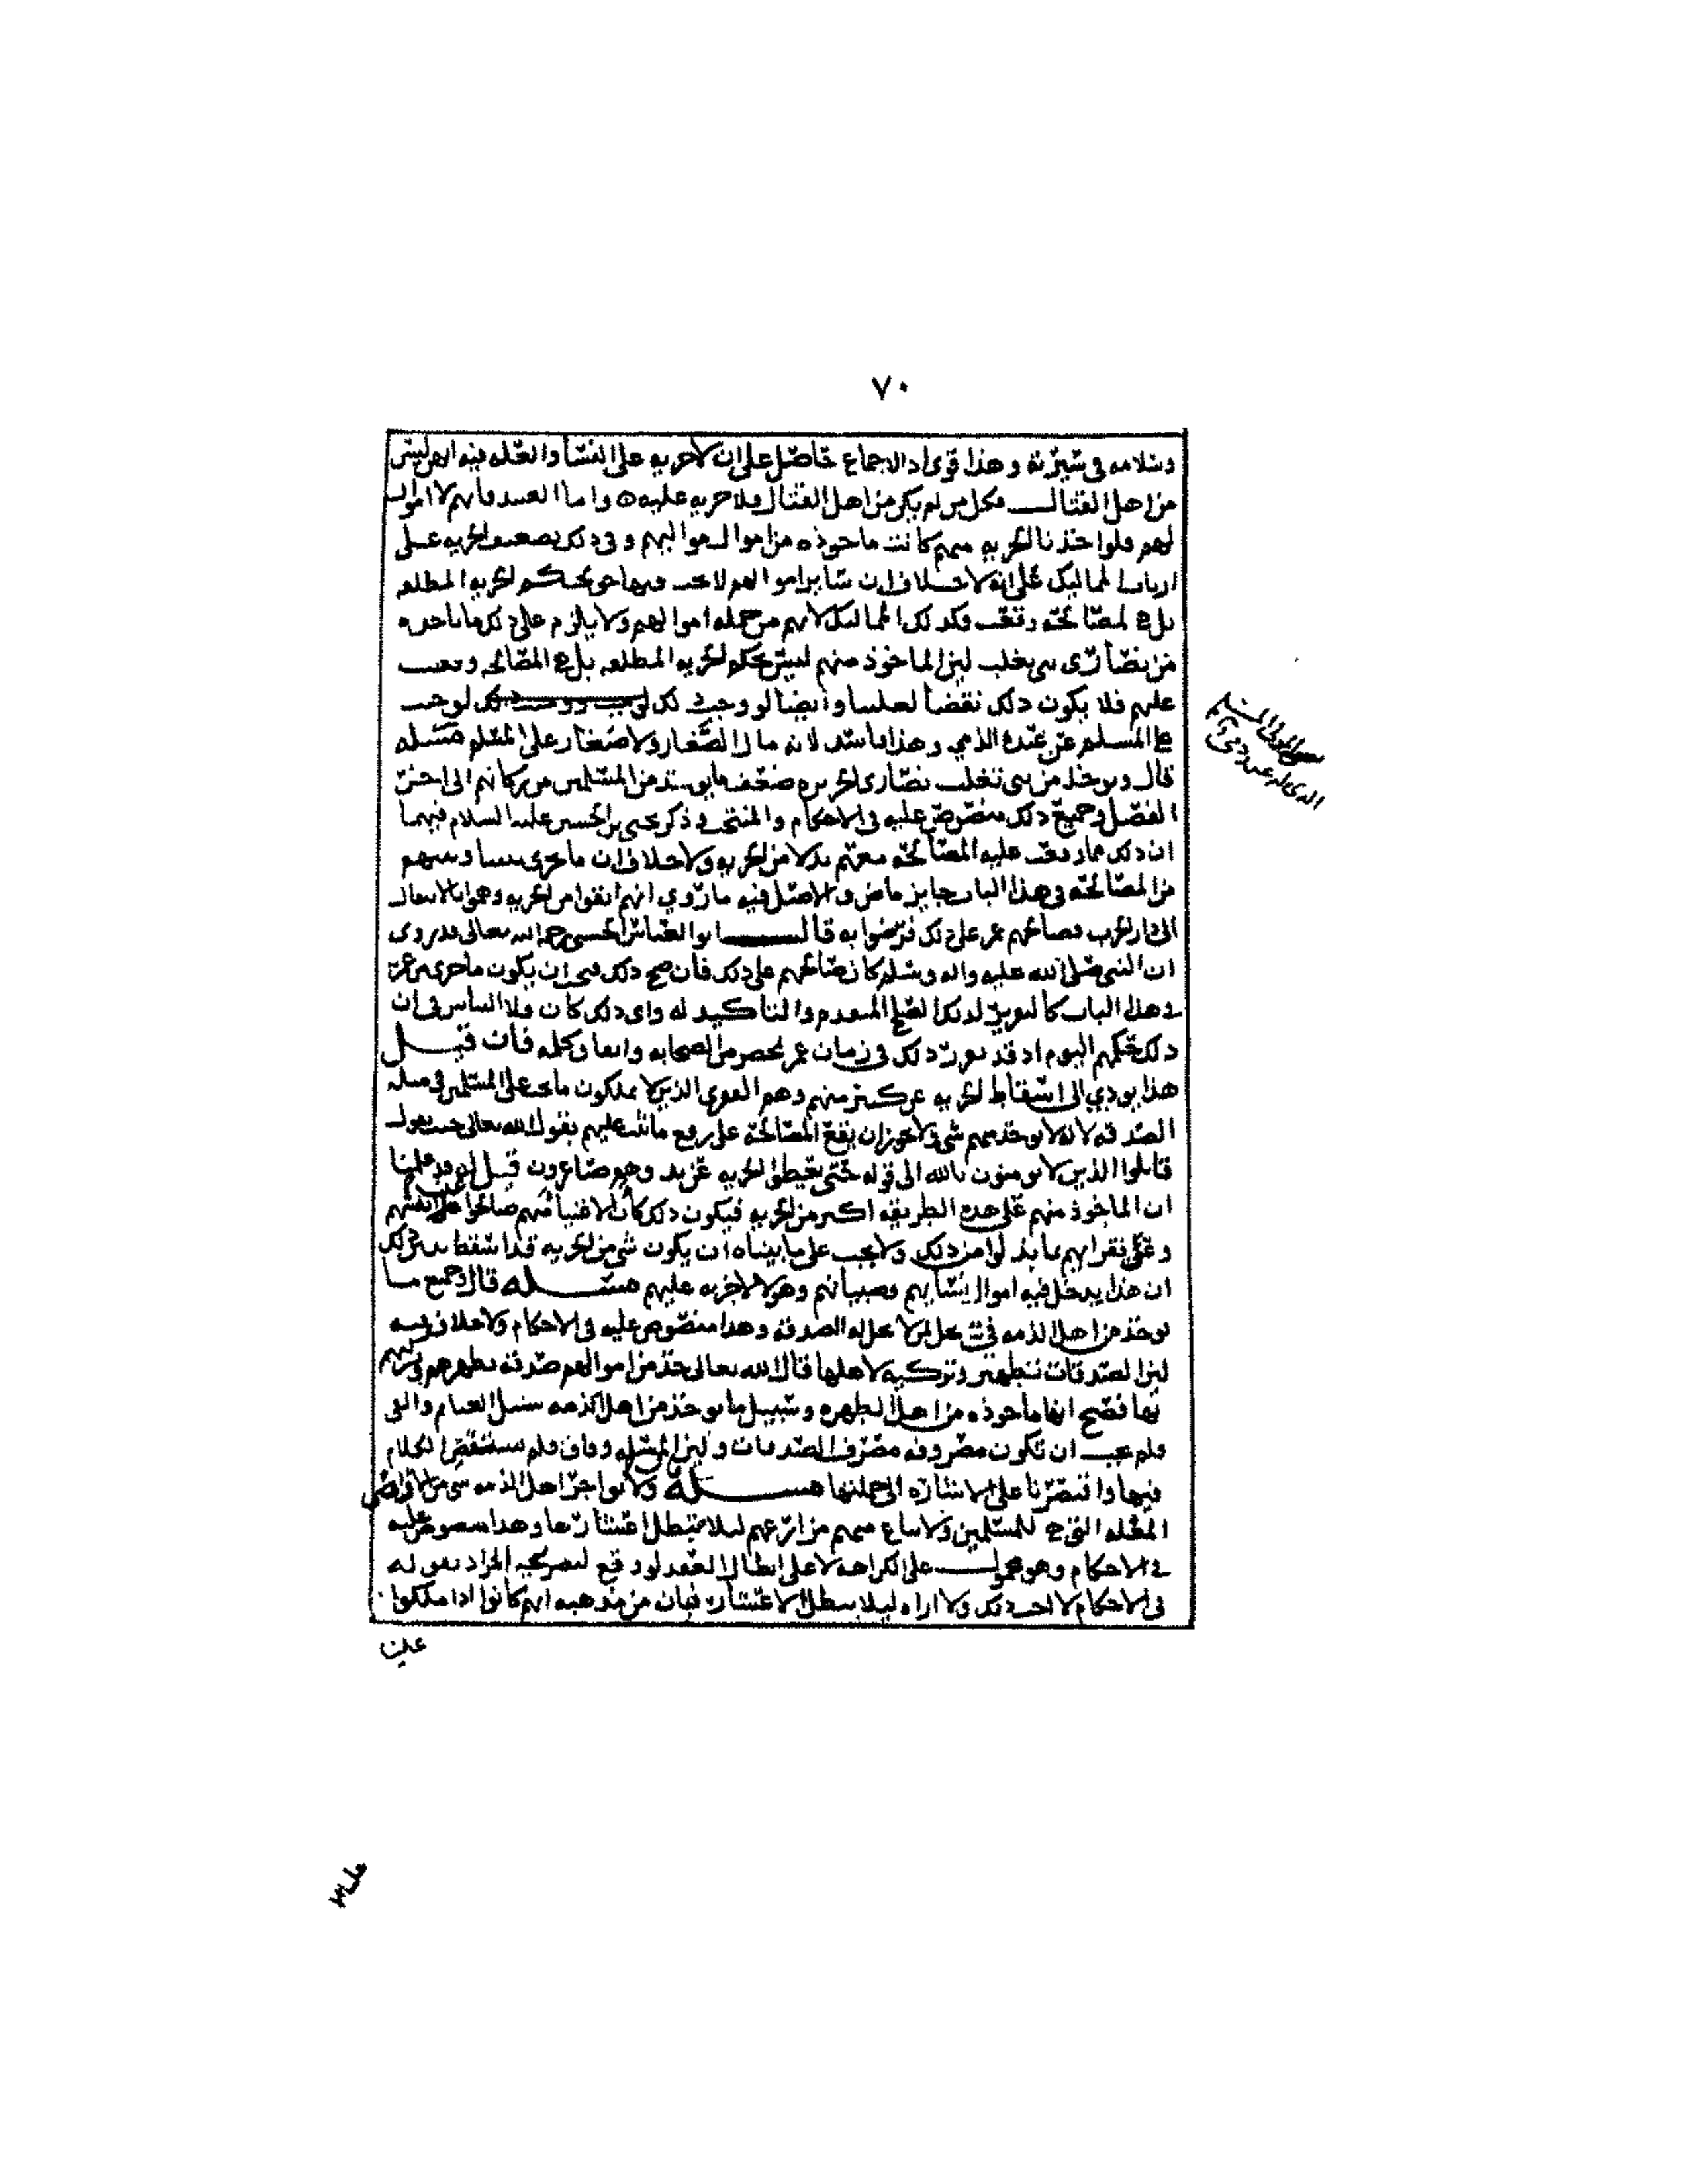 ٧٠
وسلامه في سيرته وهذا قوي اذ الاجماع حاصل على ان لا جزيه على النسا والعله فيه انهن ليس
من اهل القتال فكل من لم يكن من اهل القتال فلا جزيه عليه واما العبيد فانهم لا اموال
لهم فلو اخذنا الجزيه منهم كانت ماخوذه من اموال مواليهم وفي ذلك تضعيف الجزيه على
ارباب المماليك على انه لا خلاف ان ساير اموالهم لا يجب فيها حق بحكم الجزيه المطلقه
بل هي لمصالحه وقعت وكذلك المماليك لانهم من جمله اموالهم ولا يلزم على ذلك ما ناخذه
من نصارى بني تغلب لان الماخوذ منهم ليس بحكم الجزيه المطلقه بل هي المصالحه وقعت
عليهم فلا يكون ذلك نقضا لعلتنا وايضا لو وجب ذلك لوجب
على المسلم عن عبده الذمي وهذا فاسد لانه مال الصغار ولا صغار على المسلم مسله
قال ويوخذ من بني تغلب نصارى الجزيره ضعف ما يوخذ من المسلمين من زكاتهم الى اخر
الفصل وجميع ذلك منصوص عليه في الاحكام والمنتخب وذكر يحيى بن الحسين عليه السلام فيهما
ان ذلك مما وقعت عليه المصالحه معهم بدلا من الجزيه ولا خلاف ان ما جرى بيننا وبينهم
من المصالحه في هذا الباب جايز ماض والاصل فيه ما روي انهم انفوا من الجزيه وهموا بالانتقال
الى دار الحرب فصالحهم عمر على ذلك فرضوا به قال ابو العباس الحسني رحمه الله تعالى وقد روي
ان النبي صلى الله عليه واله وسلم كان صالحهم على ذلك فان صح ذلك فيجب ان يكون ما جرى من عمر
في هذا الباب كالتقرير لذلك الصلح المتقدم والتاكيد له واي ذلك كان فلا التباس في ان
ذلك حكمهم اليوم اذ قد تقرر ذلك في زمان عمر بمحضر من الصحابه واتفاق كلمه فان قيل
هذا يودي الى اسقاط الجزيه عن كثير منهم وهم القوم الذين لا يملكون ما يجب على المسلمين في مثله
الصدقه لانه لا يوخذ منهم شي ولا يجوز ان يقع المصالحه على رفع ما ثبت عليهم بقول الله تعالى حيث يقول
قاتلوا الذين لا يومنون بالله الى قوله حتى يعطوا الجزيه عن يد وهم صاغرون قيل له قد علمنا
ان الماخوذ منهم على هذه الطريقه اكثر من الجزيه فيكون ذلك كان الاغنيا منهم صالحوا على انفسهم
وعلى فقرايهم بما بذلوا من ذلك ولا يجب على ما بيناه ان يكون شي من الجزيه قد اسقط يبين ذلك
ان هذا يدخل فيه اموال نسايهم وصبيانهم وهولا لا جزيه عليهم مسله قال وجميع ما
يوخذ من اهل الذمه في يحل لمن لا تحل له الصدقه وهذا منصوص عليه في الاحكام ولا خلاف فيه
لان الصدقات تطهير وتزكيه لاهلها قال الله تعالى خذ من اموالهم صدقه تطهرهم وتزكيهم
بها فصح انها ماخوذه من اهل الطهره وسبيل ما يوخذ من اهل الذمه سبيل الغنايم والفي
فلم يجب ان تكون مصروفه مصرف الصدقات ولان المسله وفاق فلم نستقص الكلام
فيها واقتصرنا على الاشاره الى جملتها مسله ولا يواجر اهل الذمه شي من الاراضي
المغله التي هي للمسلمين ولا تباع منهم مزارعهم ليلا يبطل اعشارها وهذا منصوص عليه
في الاحكام وهو محمول على الكراهه لا على ابطال العقد لو وقع لتصريحه المراد بقوله
في الاحكام لا احب ذلك ولا اراه ليلا يبطل الاعشار فبان من مذهبه انهم كانوا اذا ملكوا
علىن